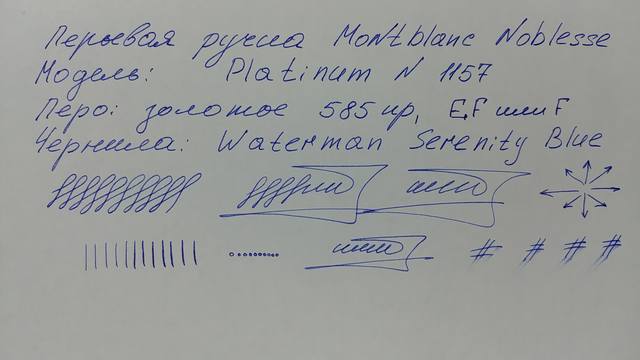 Перьевая ручка Montblanc Noblesse
Модель: Platinum N 1157
Перо: золотое 585 пр, EF или F
Чернила: Waterman Serenity Blue
# # # #